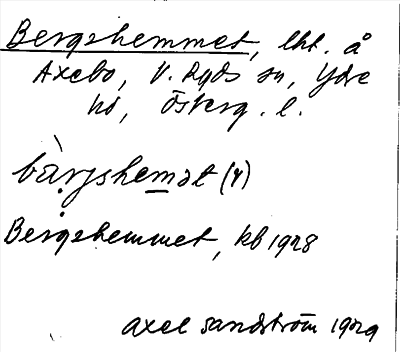 Bergshemmet, lht. å
Axebo, V. Ryds sn, Ydre
hd, Österg. l.
bàrjshemət (4)
Bergshemmet, kb 1928
Axel Sandström 1929